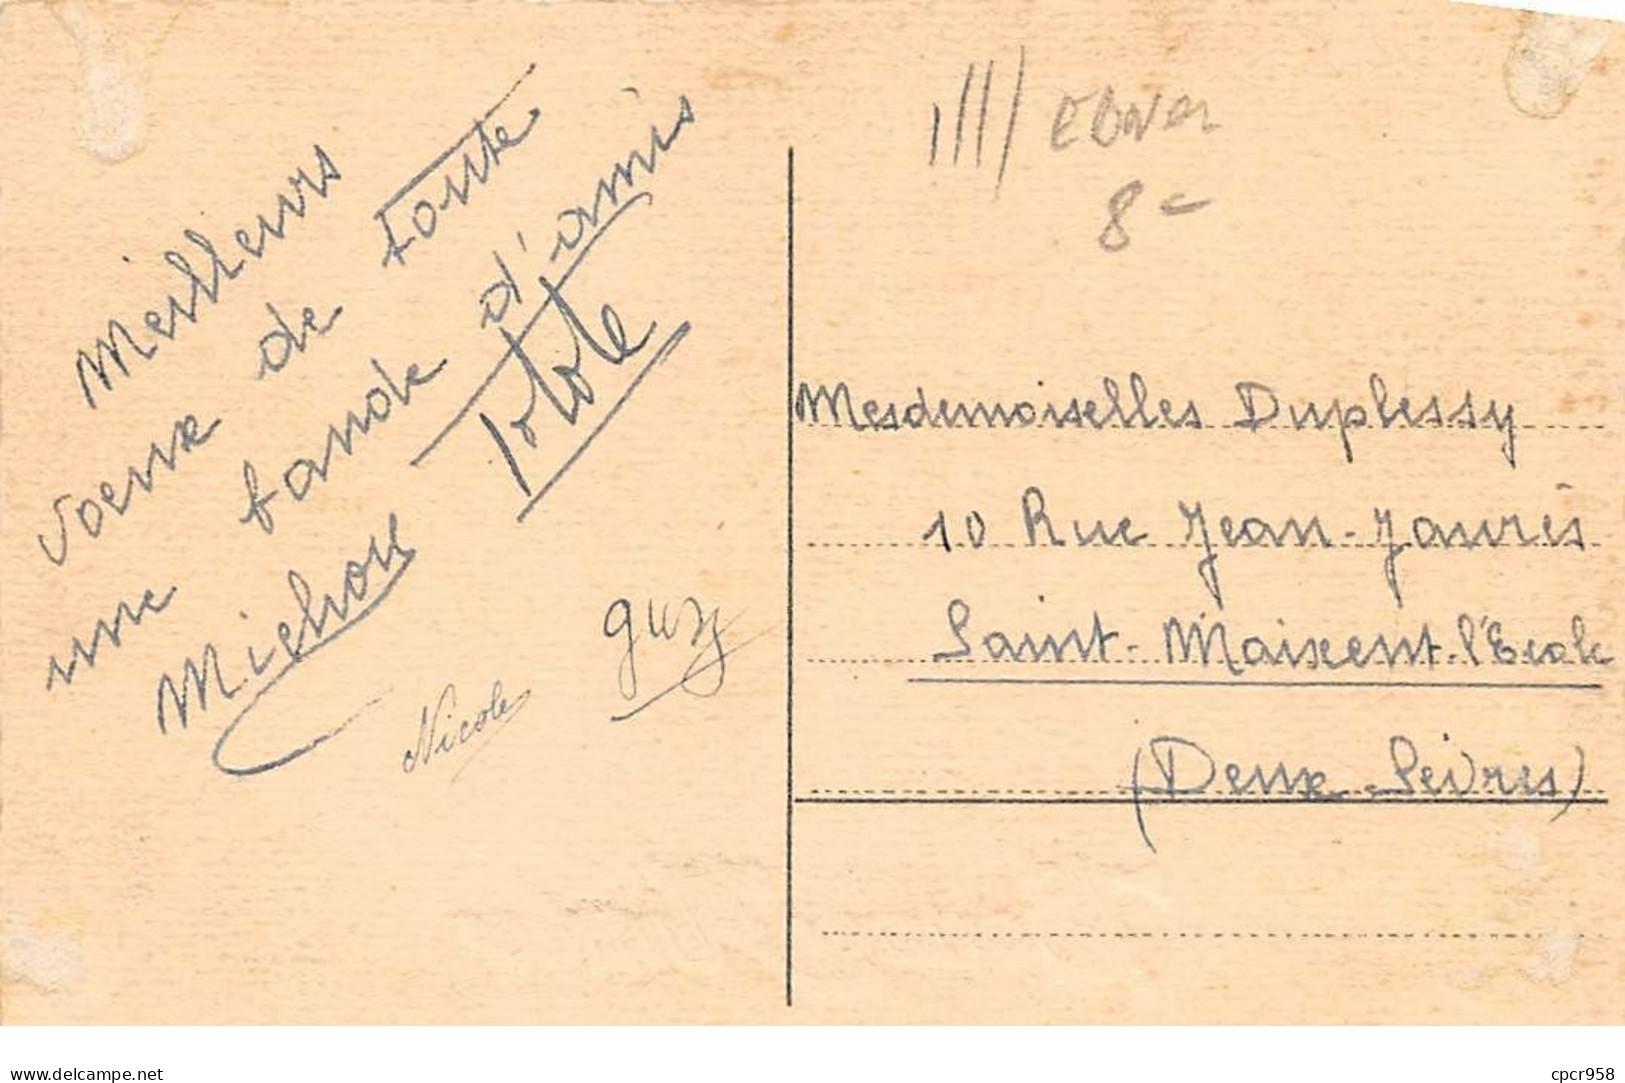 Meilleurs
voeux de toute
une bande d'amis
Michou
Totole
Nicole
guy
Ebner
8-
Mesdemoiselles Duplessy
10 Rue Jean-Jaurès
Saint-Maixent-l'Ecole
(Deux-Sèvres)
www.delcampe.net
cpcr958